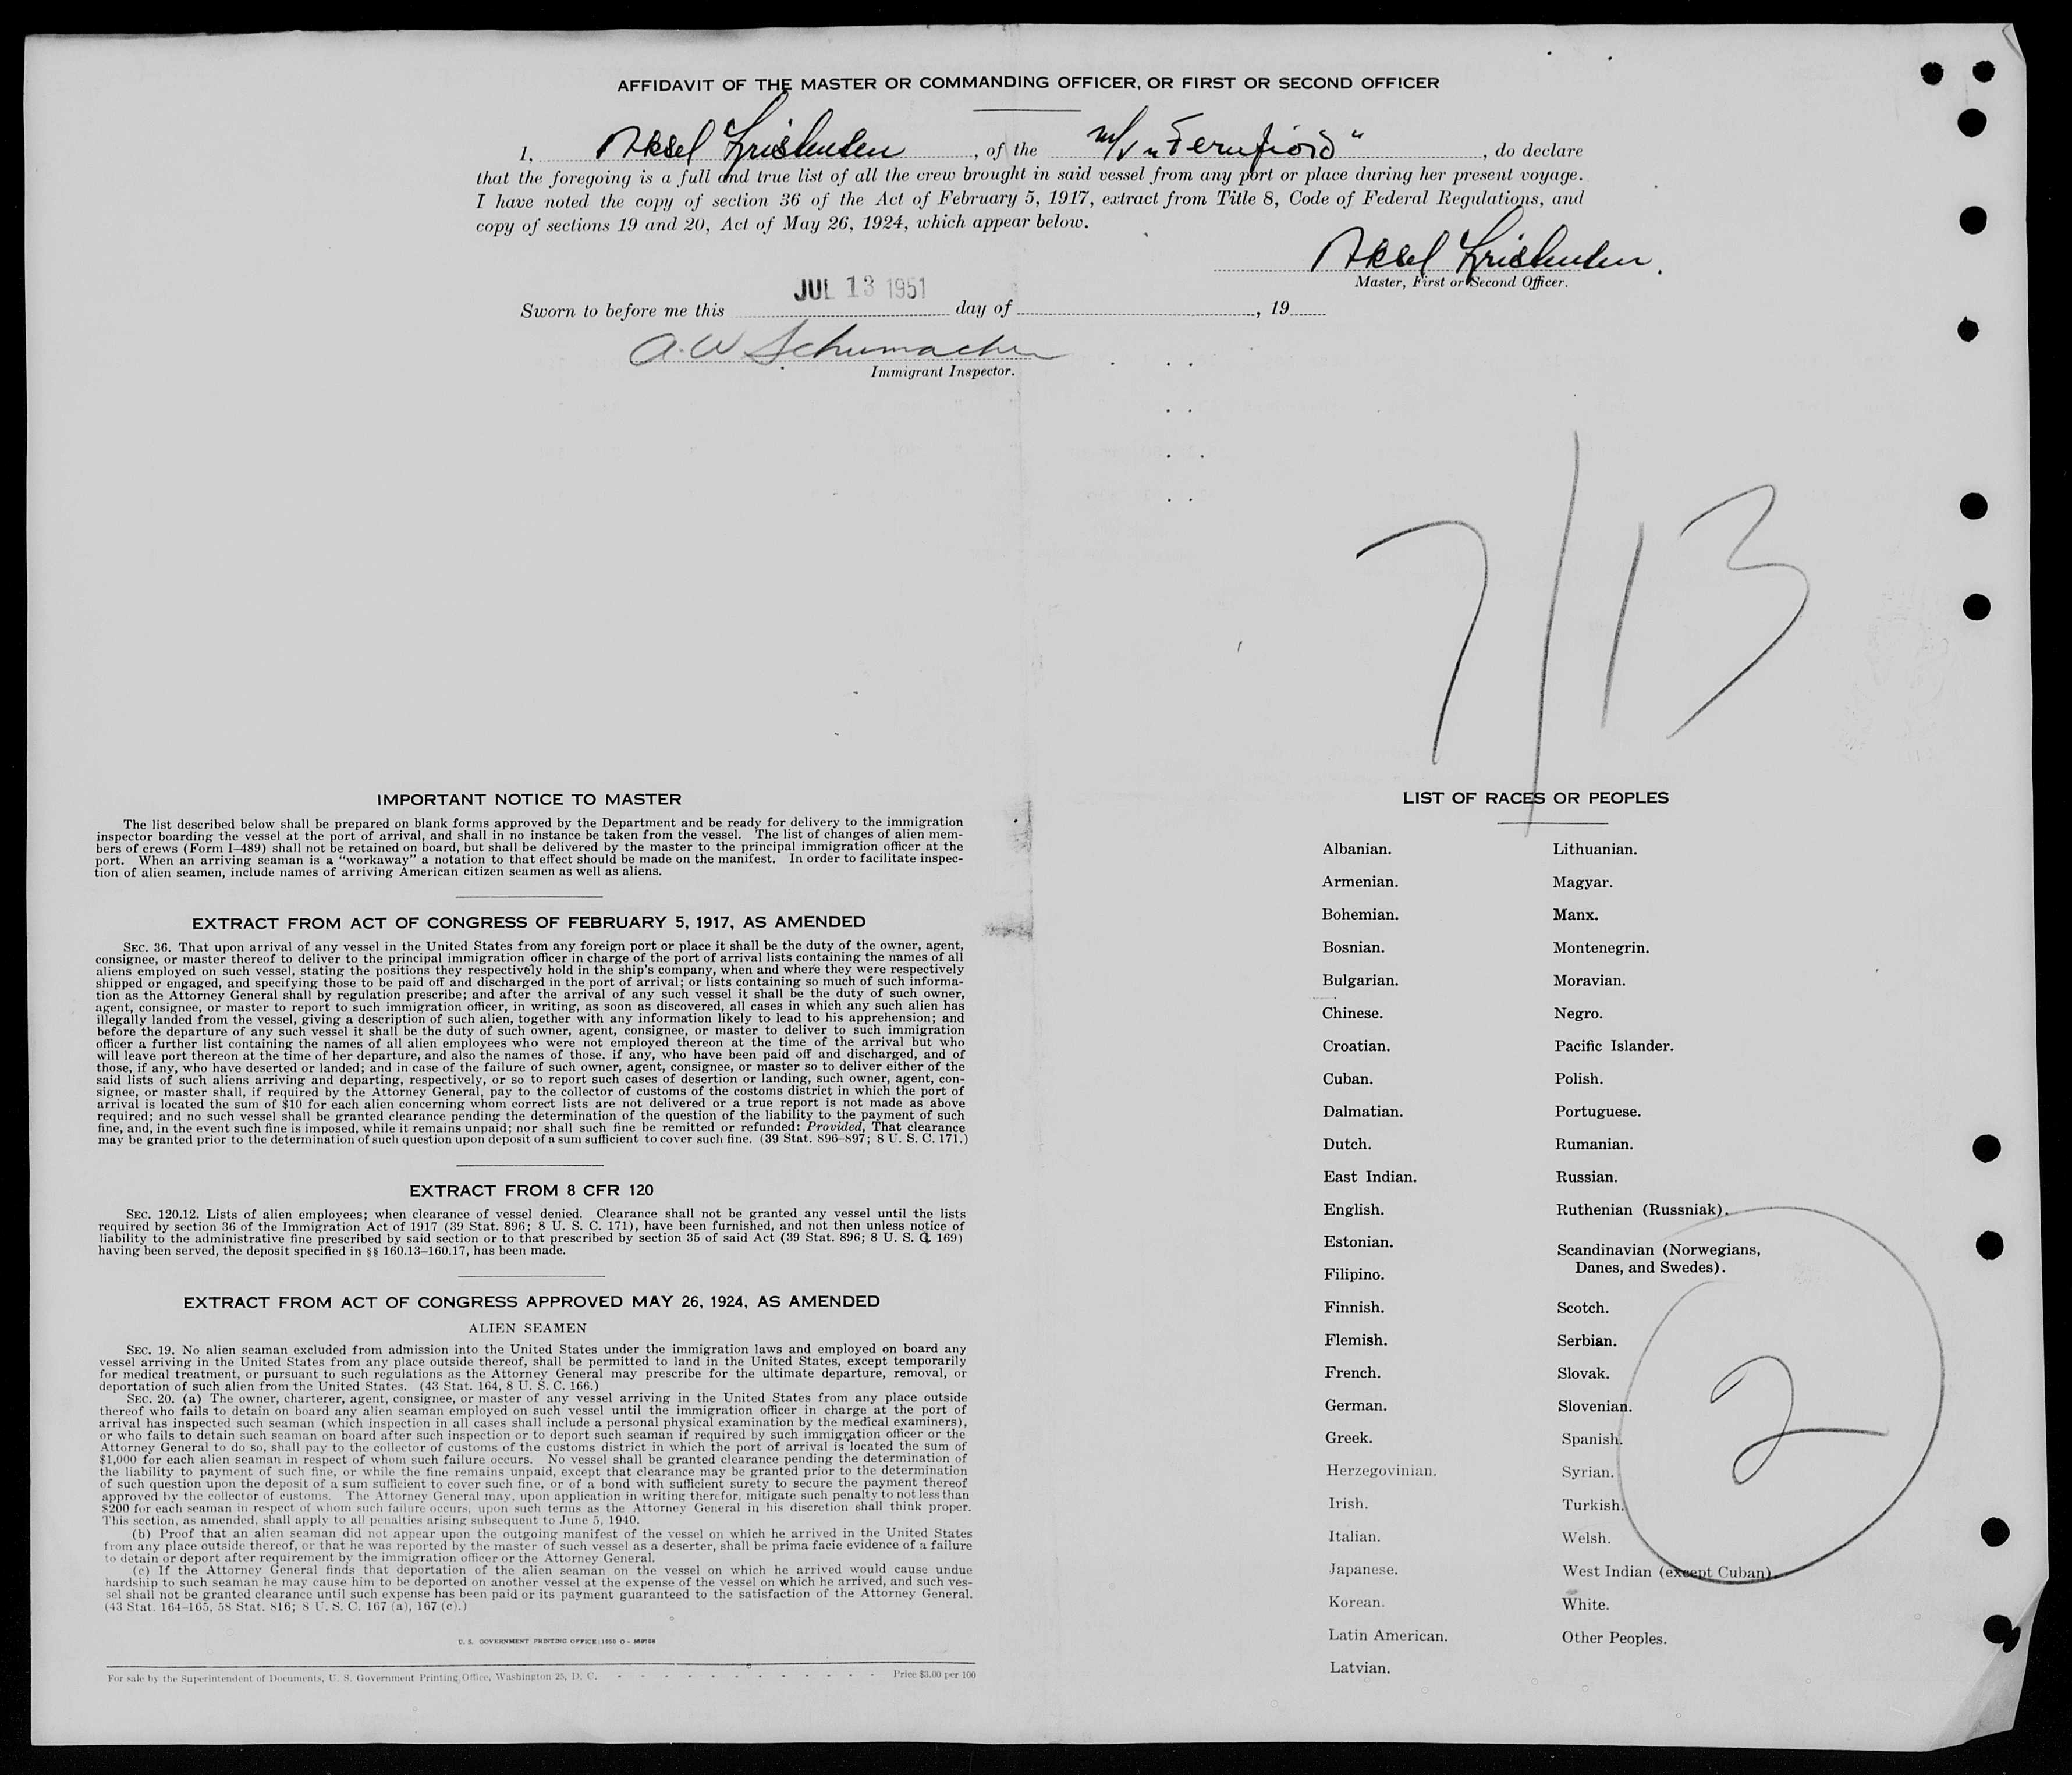 AFFIDAVIT OF THE MASTER OR COMMANDING OFFICER, OR FIRST OR SECOND OFFICER
I, Aksel Kristensen, of the M/V „Fernfiord“, do declare
that the foregoing is a full and true list of all the crew brought in said vessel from any port or place during her present voyage.
I have noted the copy of section 36 of the Act of February 5, 1917, extract from Title 8, Code of Federal Regulations, and
copy of sections 19 and 20, Act of May 26, 1924, which appear below.
Aksel Kristensen.
Master, First or Second Officer.
JUL 13 1951
Sworn to before me this day of , 19
A. W. Schumacher
Immigrant Inspector.
7/13
IMPORTANT NOTICE TO MASTER
The list described below shall be prepared on blank forms approved by the Department and be ready for delivery to the immigration
inspector boarding the vessel at the port of arrival, and shall in no instance be taken from the vessel. The list of changes of alien mem-
bers of crews (Form I-489) shall not be retained on board, but shall be delivered by the master to the principal immigration officer at the
port. When an arriving seaman is a "workaway" a notation to that effect should be made on the manifest. In order to facilitate inspec-
tion of alien seamen, include names of arriving American citizen seamen as well as aliens.
EXTRACT FROM ACT OF CONGRESS OF FEBRUARY 5, 1917, AS AMENDED
SEC. 36. That upon arrival of any vessel in the United States from any foreign port or place it shall be the duty of the owner, agent,
consignee, or master thereof to deliver to the principal immigration officer in charge of the port of arrival lists containing the names of all
aliens employed on such vessel, stating the positions they respectively hold in the ship's company, when and where they were respectively
shipped or engaged, and specifying those to be paid off and discharged in the port of arrival; or lists containing so much of such informa-
tion as the Attorney General shall by regulation prescribe; and after the arrival of any such vessel it shall be the duty of such owner,
agent, consignee, or master to report to such immigration officer, in writing, as soon as discovered, all cases in which any such alien has
illegally landed from the vessel, giving a description of such alien, together with any information likely to lead to his apprehension; and
before the departure of any such vessel it shall be the duty of such owner, agent, consignee, or master to deliver to such immigration
officer a further list containing the names of all alien employees who were not employed thereon at the time of the arrival but who
will leave port thereon at the time of her departure, and also the names of those. if any, who have been paid off and discharged, and of
those, if any, who have deserted or landed; and in case of the failure of such owner, agent, consignee, or master so to deliver either of the
said lists of such aliens arriving and departing, respectively, or so to report such cases of desertion or landing, such owner, agent, con-
signee, or master shall, if required by the Attorney General, pay to the collector of customs of the costoms district in which the port of
arrival is located the sum of $10 for each alien concerning whom correct lists are not delivered or a true report is not made as above
required; and no such vessel shall be granted clearance pending the determination of the question of the liability to the payment of such
fine, and, in the event such fine is imposed, while it remains unpaid; nor shall such fine be remitted or refunded: Provided, That clearance
may be granted prior to the determination of such question upon deposit of a sum sufficient to cover such fine. (39 Stat. 896-897; 8 U. S. C. 171.)
EXTRACT FROM 8 CFR 120
SEC. 120.12. Lists of alien employees; when clearance of vessel denied. Clearance shall not be granted any vessel until the lists
required by section 36 of the Immigration Act of 1917 (39 Stat. 896; 8 U. S. C. 171), have been furnished, and not then unless notice of
liability to the administrative fine prescribed by said section or to that prescribed by section 35 of said Act (39 Stat. 896; 8 U. S. C. 169)
having been served, the deposit specified in §§ 160.13-160.17, has been made.
EXTRACT FROM ACT OF CONGRESS APPROVED MAY 26, 1924, AS AMENDED
ALIEN SEAMEN
SEC. 19. No alien seaman excluded from admission into the United States under the immigration laws and employed on board any
vessel arriving in the United States from any place outside thereof, shall be permitted to land in the United States, except temporarily
for medical treatment, or pursuant to such regulations as the Attorney General may prescribe for the ultimate departure, removal, or
deportation of such alien from the United States. (43 Stat. 164, 8 U. S. C. 166.)
SEC. 20. (a) The owner, charterer, agent, consignee, or master of any vessel arriving in the United States from any place outside
thereof who fails to detain on board any alien seaman employed on such vessel until the immigration officer in charge at the port of
arrival has inspected such seaman (which inspection in all cases shall include a personal physical examination by the medical examiners),
or who fails to detain such seaman on board after such inspection or to deport such seaman if required by such immigration officer or the
Attorney General to do so, shall pay to the collector of customs of the customs district in which the port of arrival is located the sum of
$1,000 for each alien seaman in respect of whom such failure occurs. No vessel shall be granted clearance pending the determination of
the liability to payment of such fine, or while the fine remains unpaid, except that clearance may be granted prior to the determination
of such question upon the deposit of a sum sufficient to cover such fine, or of a bond with sufficient surety to secure the payment thereof
approved by the collector of customs. The Attorney General may, upon application in writing therefor, mitigate such penalty to not less than
$200 for each seaman in respect of whom such failure occurs, upon such terms as the Attorney General in his discretion shall think proper.
This section, as amended, shall apply to all penalties arising subsequent to June 5, 1940.
(b) Proof that an alien seaman did not appear upon the outgoing manifest of the vessel on which he arrived in the United States
from any place outside thereof, or that he was reported by the master of such vessel as a deserter, shall be prima facie evidence of a failure
to detain or deport after requirement by the immigration officer or the Attorney General.
(c) If the Attorney General finds that deportation of the alien seaman on the vessel on which he arrived would cause undue
hardship to such seaman he may cause him to be deported on another vessel at the expense of the vessel on which he arrived, and such ves-
sel shall not be granted clearance until such expense has been paid or its payment guaranteed to the satisfaction of the Attorney General.
(43 Stat. 164-165, 58 Stat. 816; 8 U. S. C. 167 (a), 167 (c).)
U. S. GOVERNMENT PRINTING OFFICE: 1950 O -
For sale by the Superintendent of Documents, U. S. Government Printing Office, Washington 25, D. C. - - - - - - - - - - - - - Price $3.00 per 100
LIST OF RACES OR PEOPLES
Albanian.
Armenian.
Bohemian.
Bosnian.
Bulgarian.
Chinese.
Croatian.
Cuban.
Dalmatian.
Dutch.
East Indian.
English.
Estonian.
Filipino.
Finnish.
Flemish.
French.
German.
Greek.
Herzegovinian.
Irish.
Italian.
Japanese.
Korean.
Latin American.
Latvian.
Lithuanian.
Magyar.
Manx.
Montenegrin.
Moravian.
Negro.
Pacific Islander.
Polish.
Portuguese.
Rumanian.
Russian.
Ruthenian (Russniak).
Scandinavian (Norwegians,
Danes, and Swedes).
Scotch.
Serbian.
Slovak.
Slovenian.
Spanish.
Syrian.
Turkish.
Welsh.
West Indian (except Cuban)
White.
Other Peoples.
2